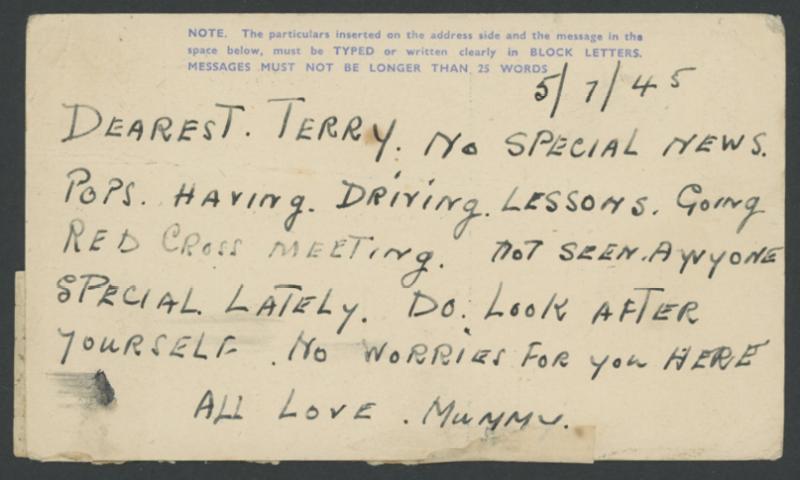 NOTE. The particulars inserted on the address side and the message in the
space below, must be TYPED or written clearly in BLOCK LETTERS.
MESSAGES MUST NOT BE LONGER THAN 25 WORDS
5/7/45
DEAREST. TERRY. No SPECIAL NEWS.
POPS. HAVING. DRIVING. LESSONS. Going
RED CROSS MEETING. NOT SEEN. ANYONE
SPECIAL. LATELY. DO. LOOK AFTER
YOURSELF. NO WORRIES FOR you HERE
ALL LOVE. MUMMY.